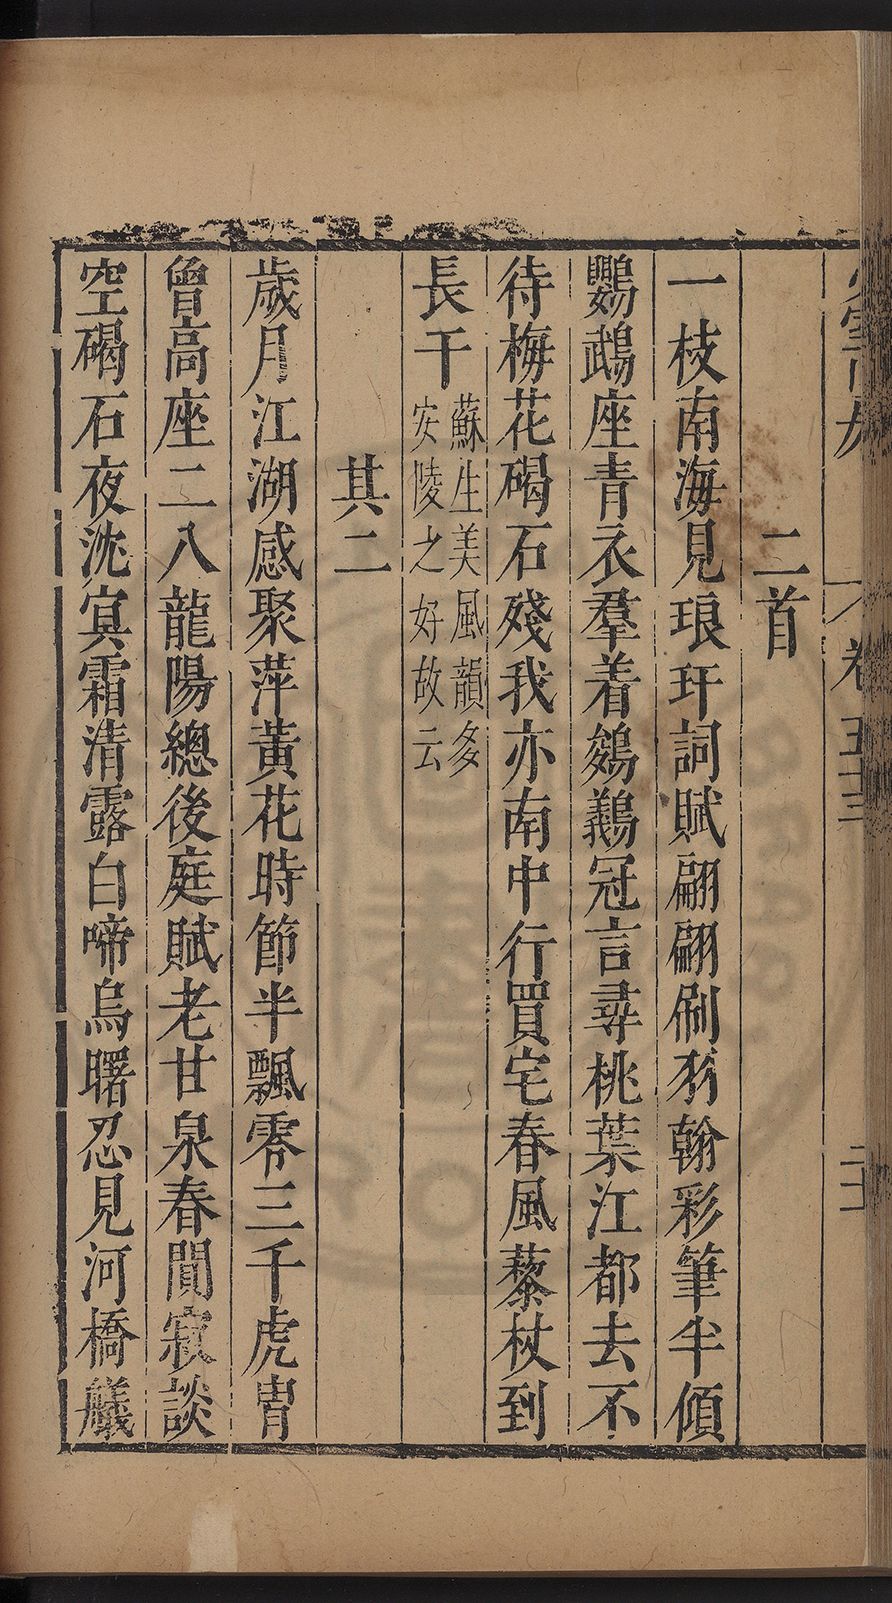 卷五十三
二首
一枝南海見琅玕詞賦翩翩刷羽翰彩筆半傾
鸚鵡座青衣羣着鷫鸘冠言尋桃葉江都去不
待梅花碣石殘我亦南中行買宅春風藜杖到
長干蘇生美風韻多
安陵之好故云
其二
歲月江湖感聚萍黃花時節半飄零三千虎冑
曾高座二八龍陽總後庭賦老甘泉春閴寂談
空碣石夜沈㝠霜清露白啼烏曙忍見河橋艤